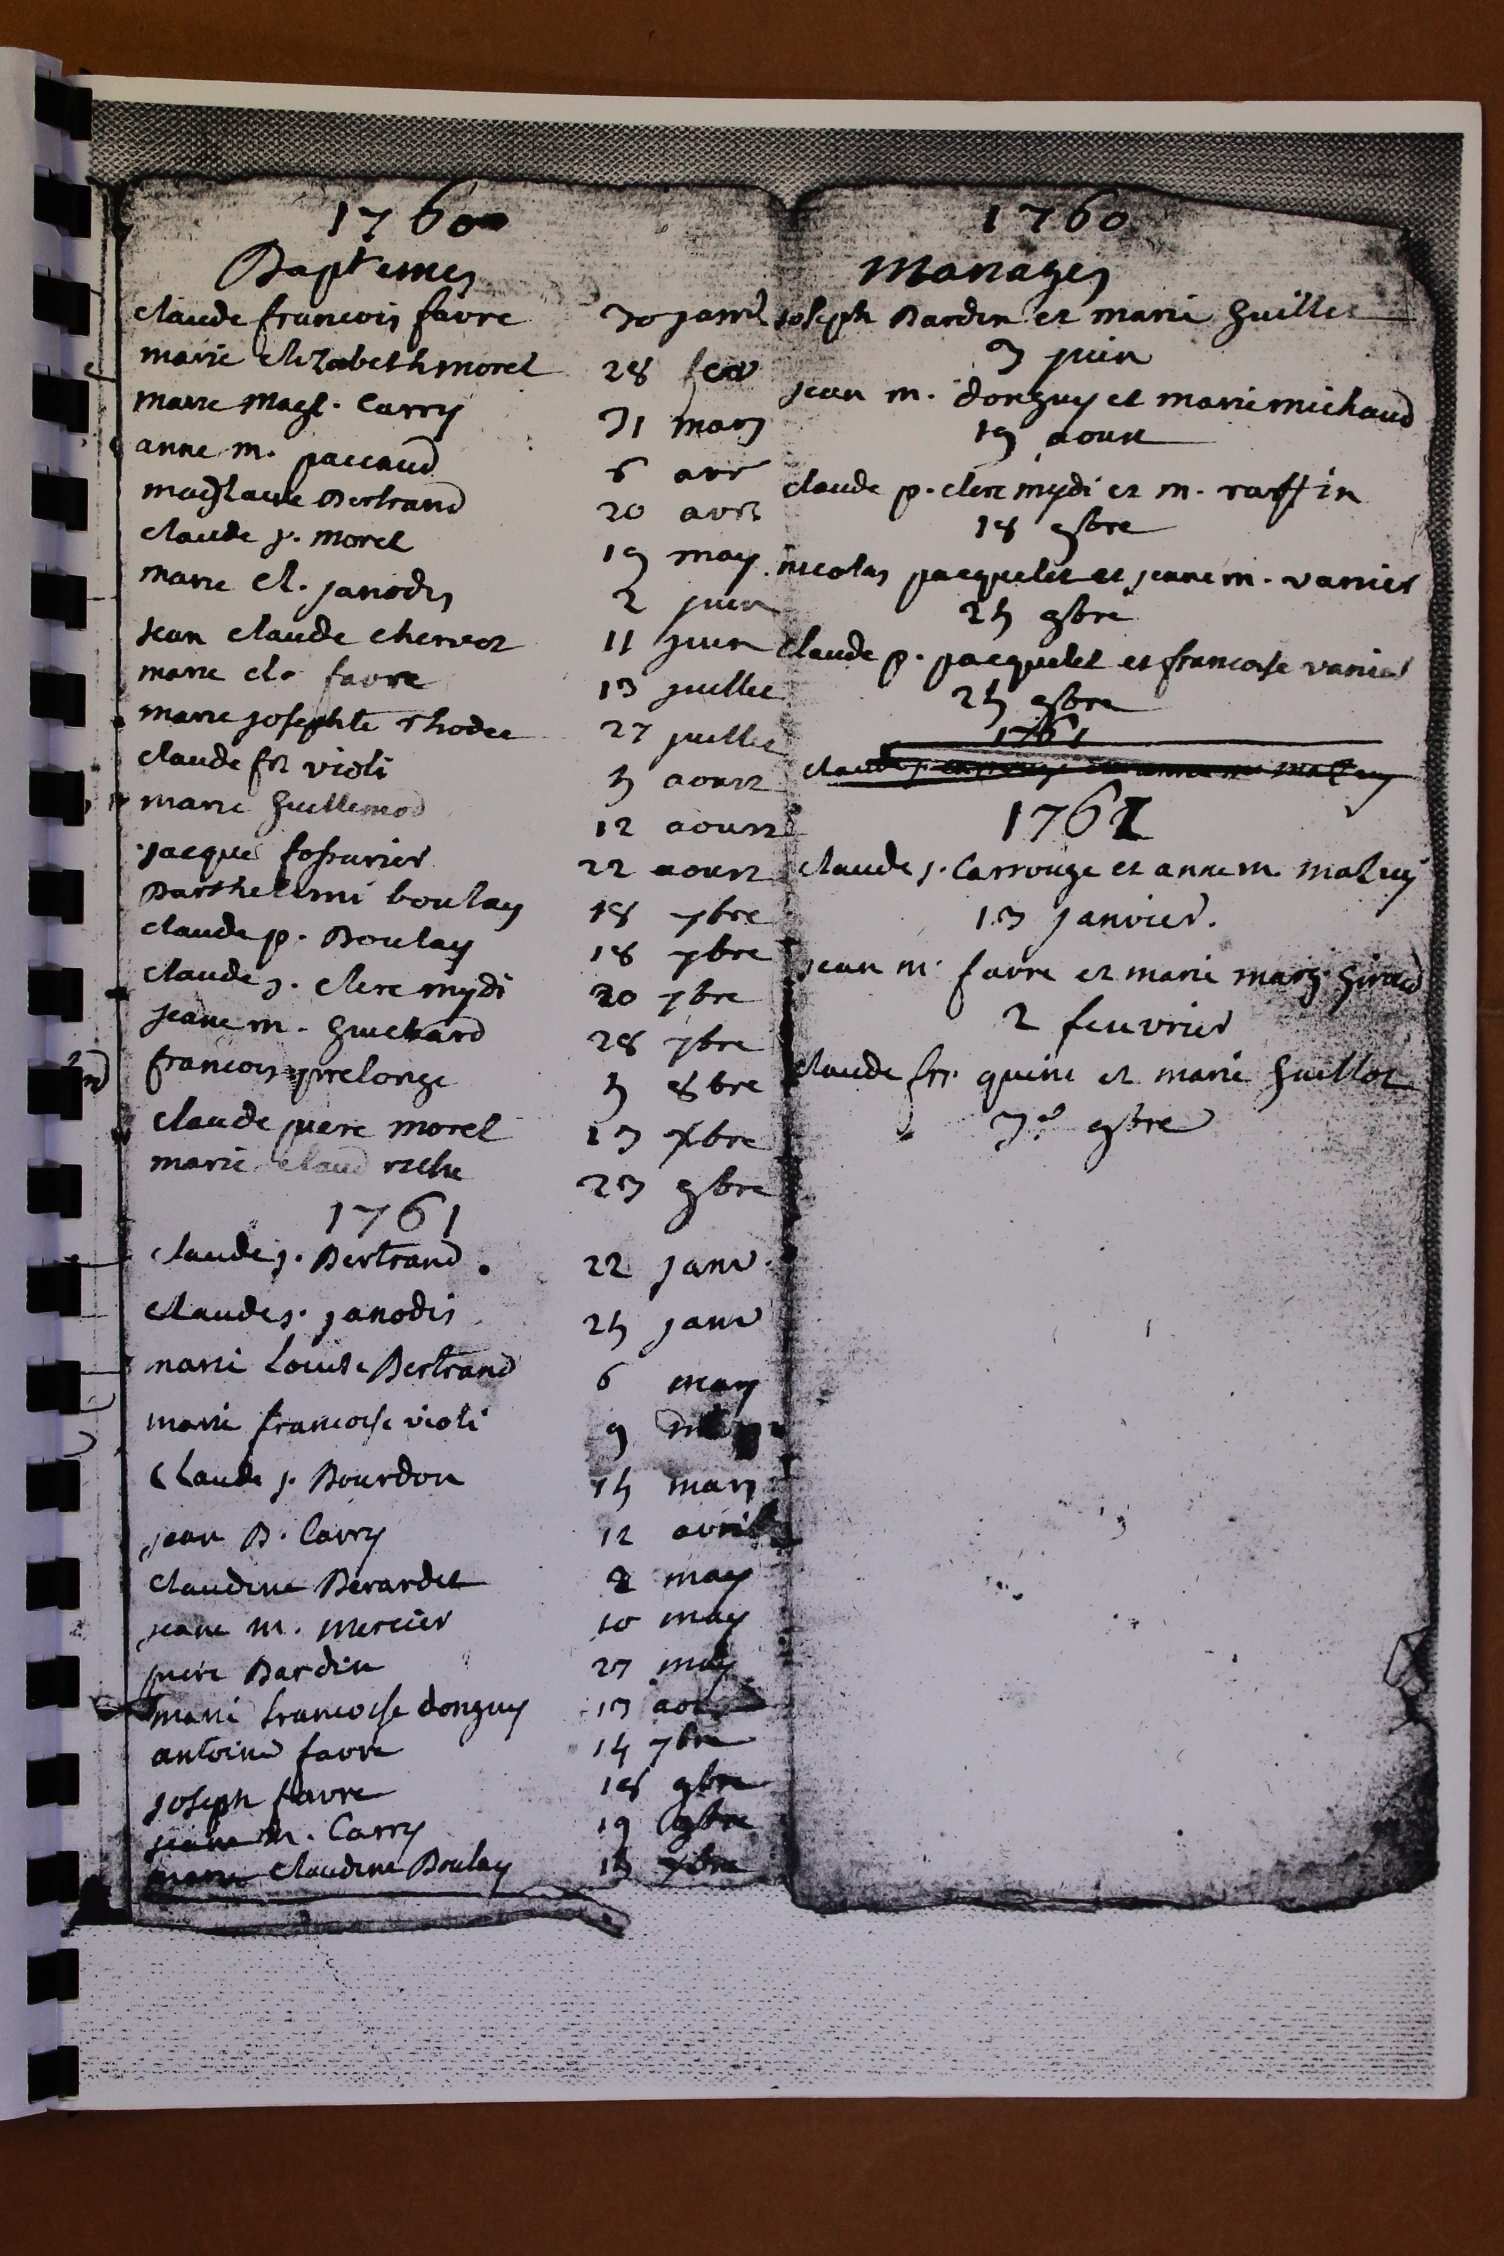 1760
Baptemes
claude francois favre 30 janv
marie elizabeth morel 28 fev
marie magl. Carry 31 mars
anne m. paccaud 6 avr
maglaine Bertrand 20 avr
claude j. morel 19 may
marie cl. janodis 2 juin
jean claude chervet 11 juin
marie cl. favre 13 juillet
marie josephte rhodet 27 juillet
claude fr violi 5 aoust
marie guillemod 12 aoust
jacque fossurier 22 aoust
Barthelemi boulay 18 7bre
claude p. Boulay 18 7bre
claude j. clere mydi 20 7bre
jeane m. guichard 28 7bre
francois prelonge 5 8bre
claude piere morel 13 xbre
marie claud riche 23 9bre
1761
claude j. Bertrand. 22 janv
claude j. janodis 25 janv
marie Louise Bertrand 6 mars
marie francoise violi 9
claude j. Bourdon 15 mars
jean B. Carry 12 avril
claudine Berardet 2 may
jeane m. mercier 10 may
piere Bardin 27 may
marie francoise donguy 13 aou
antoine favre 14 7bre
joseph favre 18 9bre
jeane m. Carry 19 9bre
marie claudine Boulay 15 xbre
1760
Mariages
joseph Bardin et marie guillet
3 juin
jean m. donguy et marie michaud
19 aoust
claude p. clere mydi et m. raffin
18 9bre
nicolas pacquelet et jeane m. varries
25 9bre
claude p. pacquelet et francoise varies
25 9bre
1761
claude j. carrouge et anne m. maluy
1761
claude j. Carrouge et anne m maluy
13 janvier.
jean m. favre et marie marg. giraud
2 feuvrier
claude fr. quine et marie guillot
3e 9bre